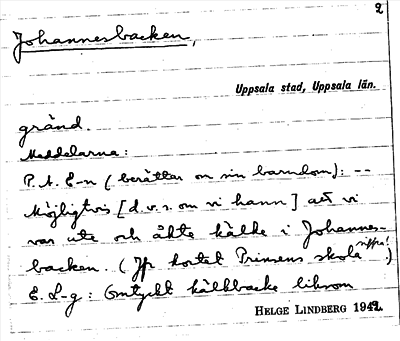 2
Johannesbacken,
Uppsala stad, Uppsala län.
gränd.
Meddelarna:
P. A. E-n (berättar om sin barndom): --
Möjligtvis [d.v.s. om vi hann] att vi
var ute och åkte kälke i Johannes-
backen. (Jfr kortet Prinsens skola )
E. L-g: Omtyckt kälkbacke liksom
HELGE LINDBERG 1942.